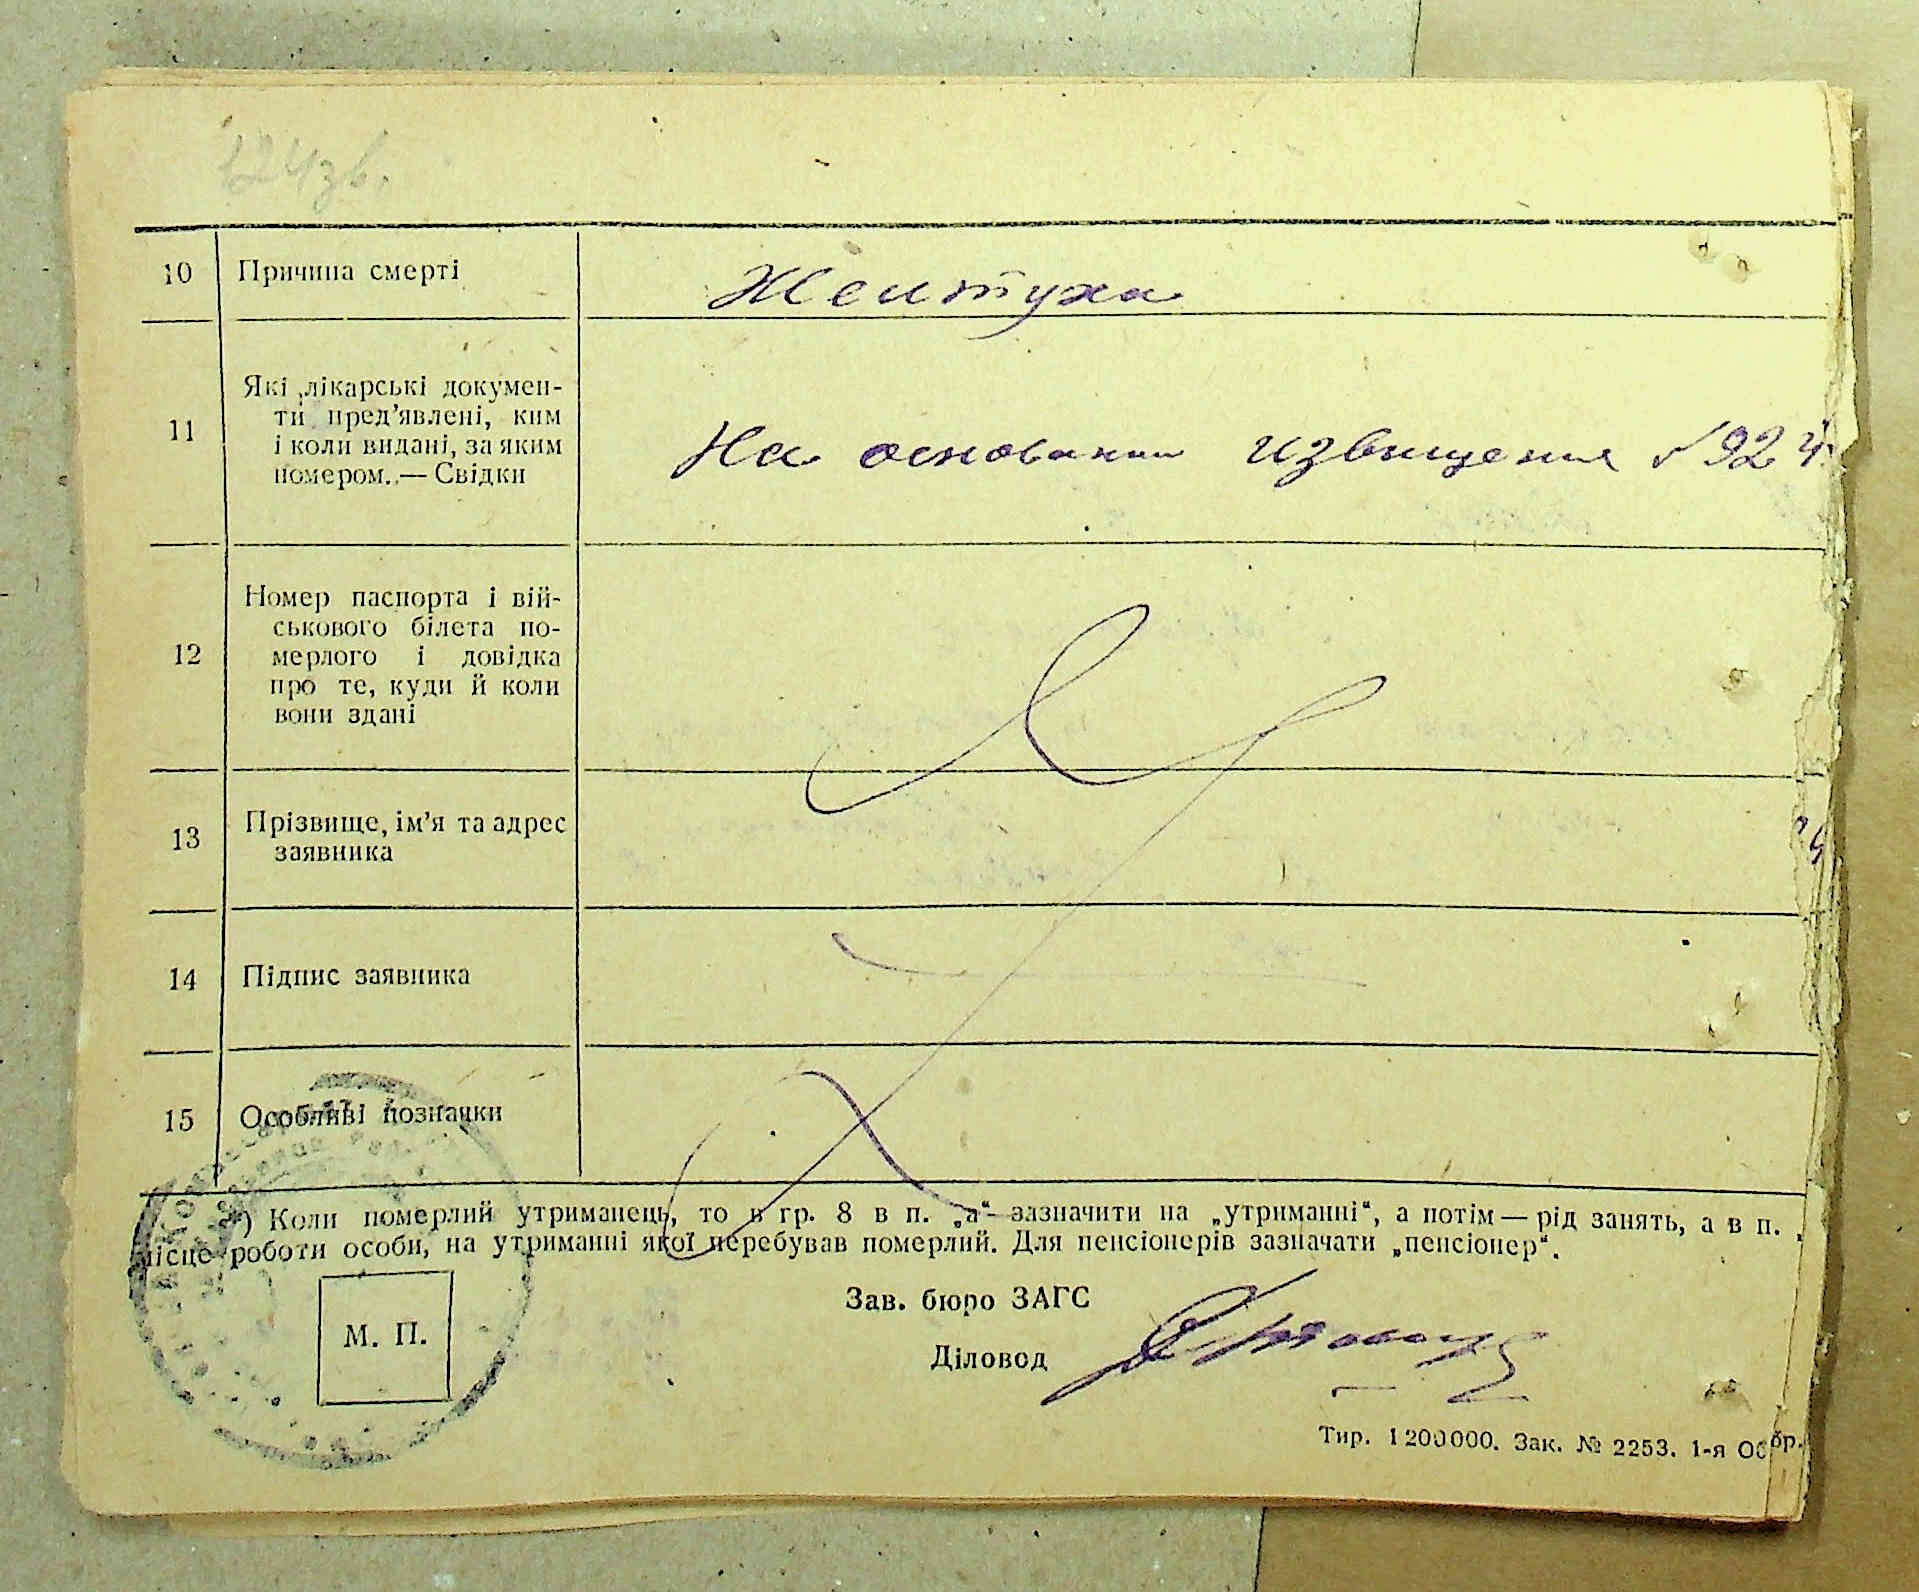 124зв.
10 Причина смерті Желтуха
11 Які лікарські докумен-
ти пред’явлені, ким
і коли видані, за яким
номером. — Свідки
На основании извещения №924
12 Номер паспорта і вій-
ськового білета по-
мерлого і довідка
про те, куди й коли
вони здані
13 Прізвище, ім’я та адрес
заявника
14 Підпис заявника
15 Особливі позначки
*) Коли померлий утриманець, то в гр. 8 в п. „а“ зазначити на „утриманні“, а потім — рід занять, а в п.
місце роботи особи, на утриманні якої перебував померлий. Для пенсіонерів зазначати „пенсіонер“.
Зав. бюро ЗАГС
М. П.
Діловод
Тир. 1200000. Зак. № 2253. 1-я Обр.